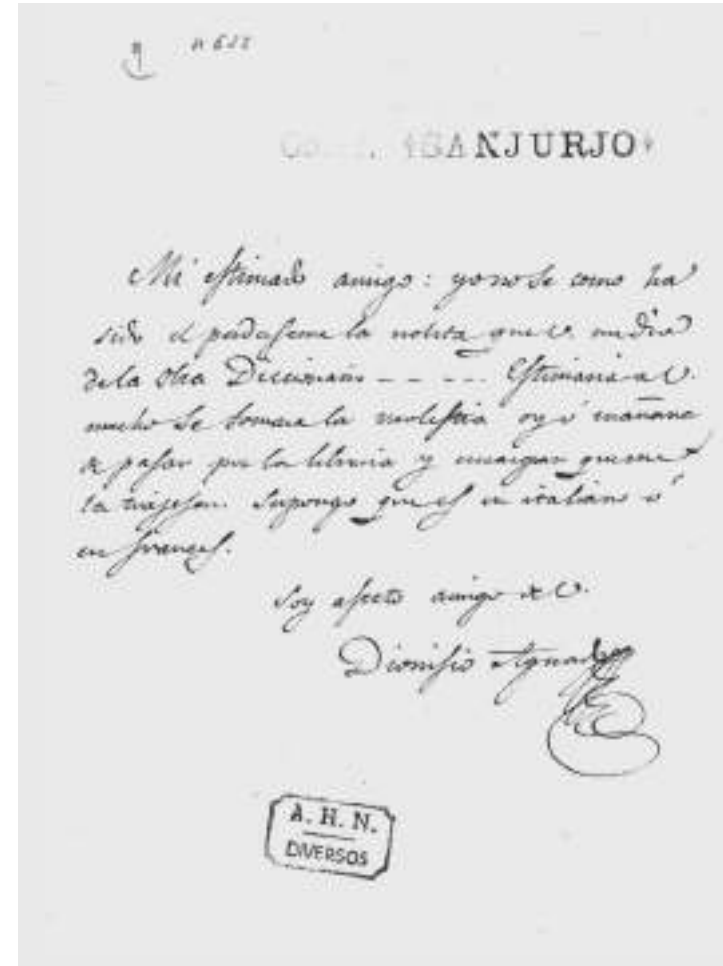 n 612
SANJURJO
Mi estimado amigo: yo no se como ha
sido el perderseme la notita que V. me dio
de la obra Diccionario - - - - Estimaria a V.
mucho se tomara la molestia oy ó mañana
de pasar por la libreria y encargar que me
la trajesen. Supongo que es en italiano ó
en frances.
Soy afecto amigo de V.
Dionisio Aguado
A. H. N.
DIVERSOS